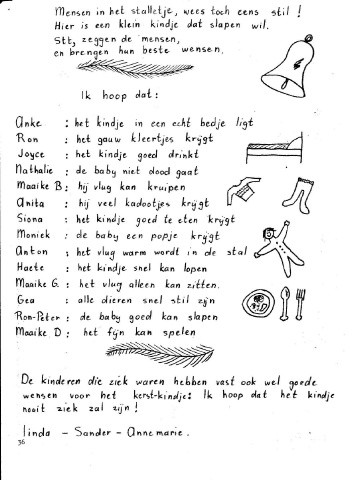 Mensen in het stalletje, wees toch eens stil !
Hier is een klein kindje dat slapen wil.
Stt, zeggen de mensen,
en brengen hun beste wensen.
Ik hoop dat:
Anke : het kindje in een echt bedje ligt
Ron : het gauw kleertjes krijgt
Joyce : het kindje goed drinkt
Nathalie : de baby niet dood gaat
Maaike B : hij vlug kan kruipen
Anita : hij veel kadootjes krijgt
Siona : het kindje goed te eten krijgt
Moniek : de baby een popje krijgt
Anton : het vlug warm wordt in de stal
Haete : het kindje snel kan lopen
Maaike G. : het vlug alleen kan zitten.
Gea : alle dieren snel stil zijn
Ron-Peter : de baby goed kan slapen
Maaike D : het fijn kan spelen
De kinderen die ziek waren hebben vast ook wel goede
wensen voor het kerst-kindje: Ik hoop dat het kindje
nooit ziek zal zijn !
linda - Sander - Annemarie.
36